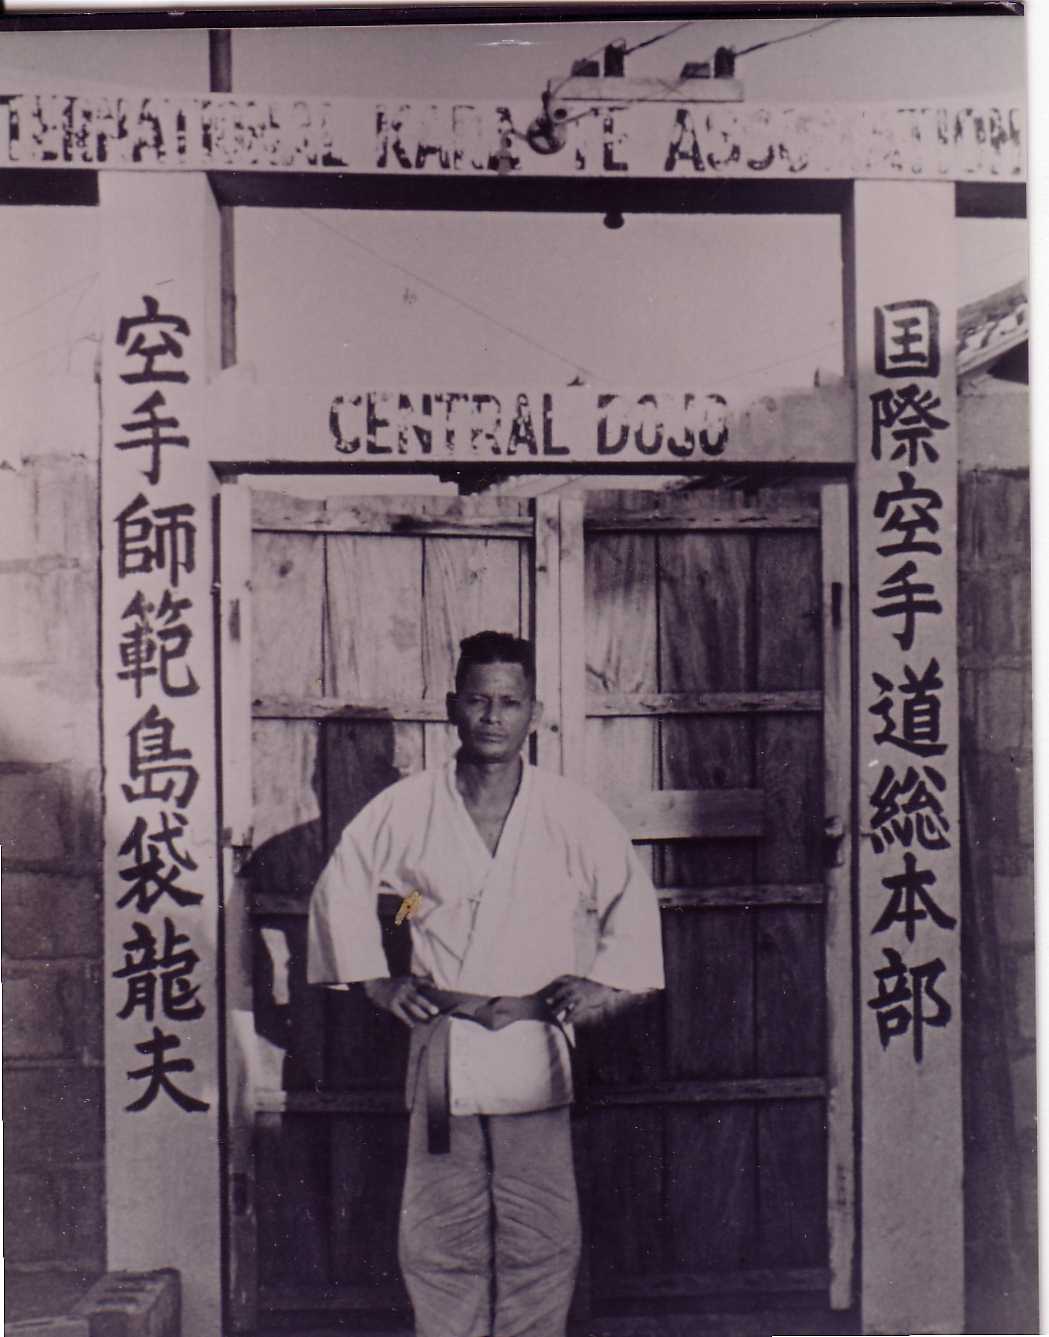 TERNATIONAL KARATE ASSOCIATION
CENTRAL DOJO
国際空手道総本部
空手師範島袋龍夫